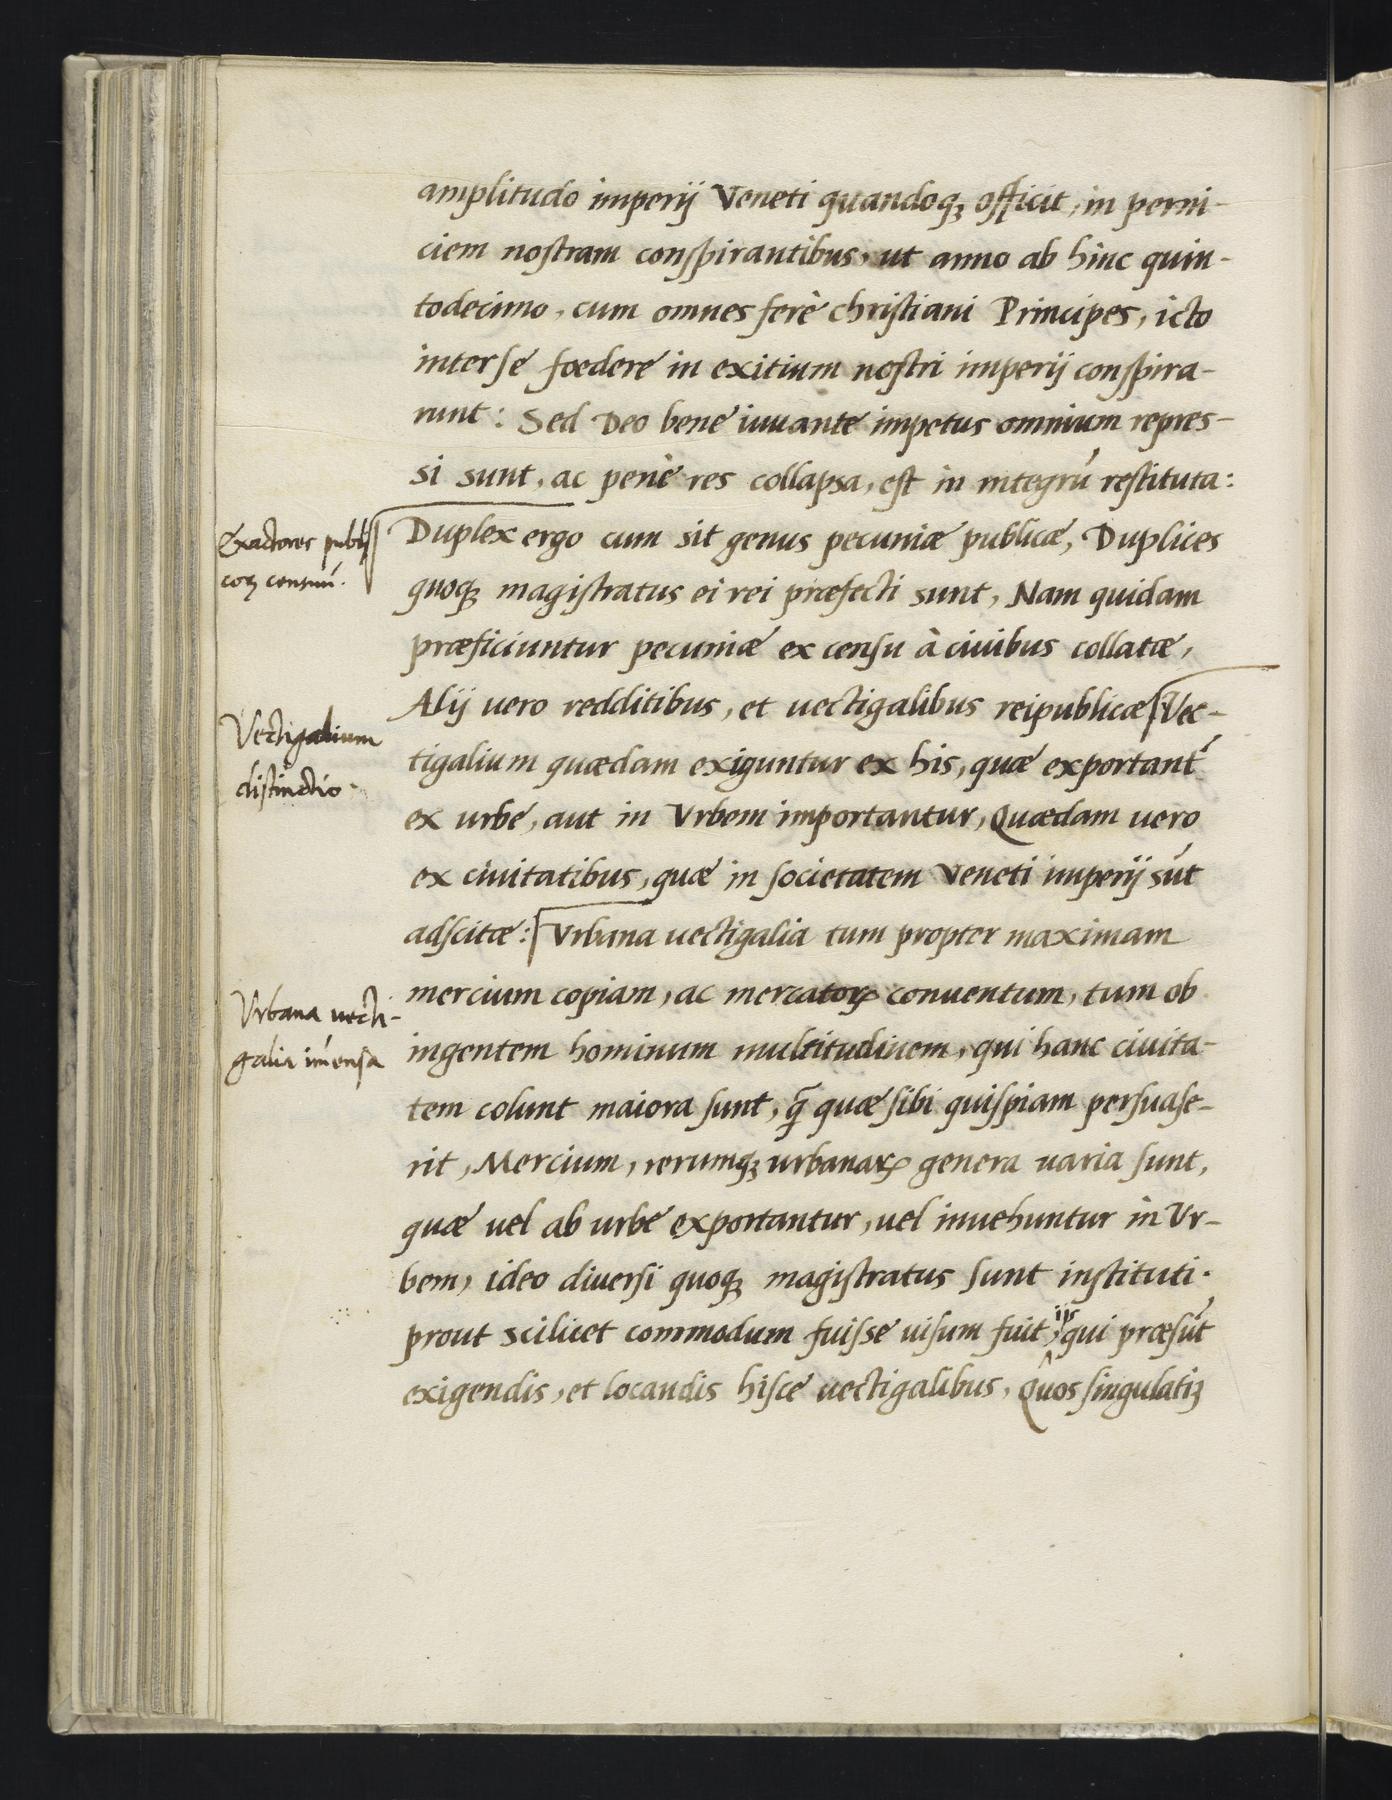 amplitudo imperij Veneti quandoqꝫ officit, in perni-
ciem nostram conspirantibus, ut anno ab hinc quin-
todecimo, cum omnes ferè christiani Principes, icto
inter se foedere in exitium nostri imperij conspira-
runt: Sed Deo bene iuuante impetus omnium repres-
si sunt, ac penè res collapsa, est in integrū restituta:
Exactores publi
coꝝ censuū.
Duplex ergo cum sit genus pecuniæ publicæ, Duplices
quoqꝫ magistratus ei rei præfecti sunt, Nam quidam
præficiuntur pecuniæ ex censu à ciuibus collatæ,
Alij uero redditibus, et uectigalibus reipublicæ Vec-
Vectigalium
distinctio.
tigalium quædam exiguntur ex his, quæ exportant᷑
ex urbe, aut in Vrbem importantur, Quædam uero
ex ciuitatibus, quæ in societatem Veneti imperij sūt
adscitæ: Vrbana uectigalia tum propter maximam
Vrbana uecti-
galia im̄ensa
mercium copiam, ac mercatoꝝ conuentum, tum ob
ingentem hominum multitudinem, qui hanc ciuita-
tem colunt maiora sunt, q̃ quæ sibi quispiam persuase-
rit, Mercium, rerumqꝫ urbanaꝝ genera uaria sunt,
quæ uel ab urbe exportantur, uel inuehuntur in Vr-
bem, ideo diuersi quoqꝫ magistratus sunt instituti.
prout scilicet commodum fuisse uisum fuit, iis qui præsūt
exigendis, et locandis hisce uectigalibus, Quos singulatiꝫ